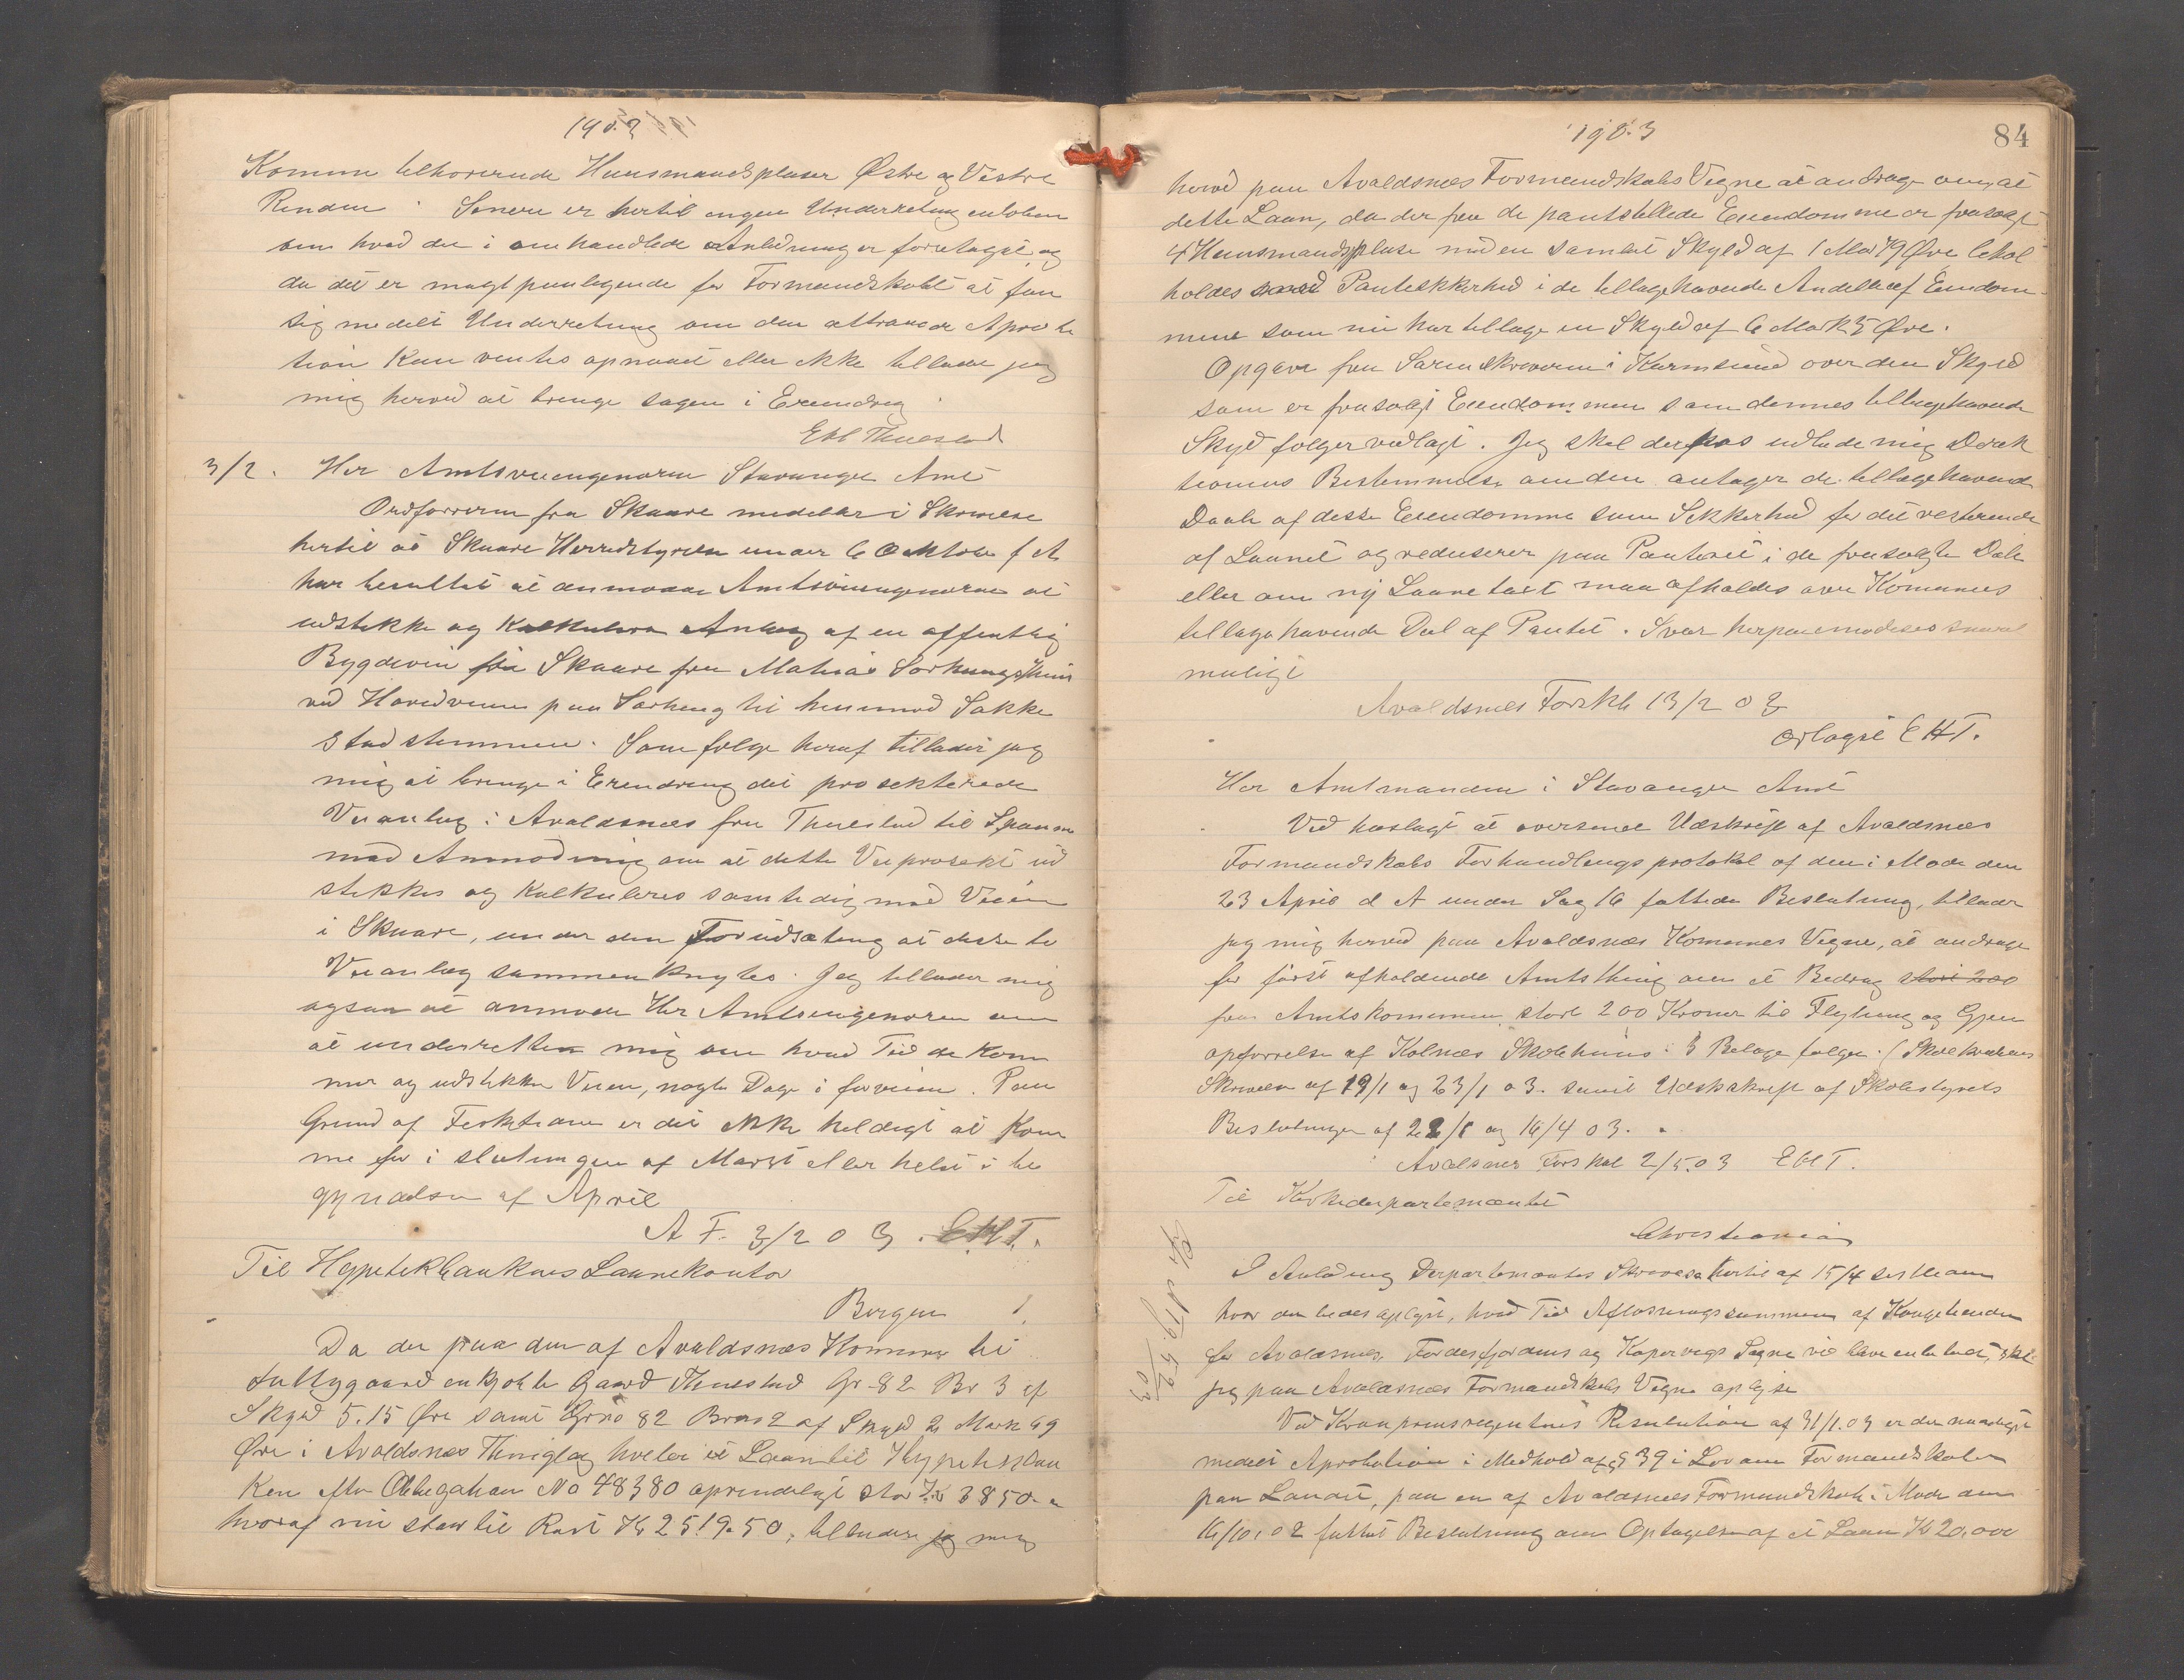 1903
Komune tilhørende Huusmandsplasser Østre og Vestre
Rinden. Senere er hertil ingen Underretning indløben
om hvad der i omhandlede Anledning er foretaget, og
da det er magtpaaliggende for Formandskabet at faa
sig medelt Underretning om den attraaede Aproba
tion kan ventes opnaaet eller ikke tillader jeg
mig herved at bringe sagen i Erindring.
EH Thuestad
3/2. Her Amtsveiingeniøren Stavanger Amt
Ordføreren fra Skaare medeler i Skrivelse
hertil at Skaare Herredstyrelse under 6 Oktober f A
har besluttet at anmode Amtsveiingeniøren at
udstikke og Kalkulere Anlæg af en offentlig
Bygdevei fra Skaare fra Mathias Sørhaugs Huus
ved Hovedveien paa Sørhaug til henimod Sakke
stadstemmen. Som følge heraf tillader jeg
mig at bringe i Erindring det prosekterede
Veianlæg i Avaldsnes fra Thuestad til Spanne
med Anmodning om at dette Veiprosekt ud
stikkes og Kalkuleres samtidig med Veien
i Skaare, under den Forudsætning at disse to
Veianlæg sammenknyttes. Jeg tillader mig
ogsaa at anmode Her Amtsingeniøren om
at underrette mig om hvad Tid de kom
mer og udstikker Veien, nogle Dage i forveien. Paa
Grund af Fisketiden er det ikke heldigt at Kom
me før i slutningen af Marst eller helst i be
gyndelsen af April
A F. 3/2 03. EHT.
Til Hypotekbankens Laanekontor
Bergen
Da der paa den af Avaldsnes Komune til
Fattiggaard indkjøbte Gaard Thuestad Gr 82 Br 3 af
Skyld 5.15 Øre samt Grno 82 Brno 2 af Skyld 2 Mark 49
Øre i Avaldsnes Thinglag hviler et Laan til Hypotekban
ken efter Obligation No 48380 oprindeligt stor Kr 3850 -
hvoraf nu staar til Rest Kr 2519.50, tillader jeg mig
1903
84
herved paa Avaldsnes Formandskabs Vegne at andrage om at
dette Laan, da der fra de pantstillede Eiendomme er frasolgt
4 Huusmandspladse med en samlet Skyld af 1 Mark 79 Øre behol
holdes med Pantesikkerhed i de tilbagehavende Andele af Eiendom
mene som nu har tilbage en Skyld af 6 Mark 5 Øre.
Opgave fra Sorenskriveren i Karmsund over den Skyld
som er frasolgt Eiendommen som dennes tilbagehavende
Skyld følger vedlagt. Jeg skal derfor udbede mig Direk
tionens Bestemmelse om den antager de tilbagehavende
Dele af disse Eiendomme som Sikkerhed for det resterende
af Laanet og reduserer paa Panteret i de frasolgte Dele
eller om ny Laanetaxt maa afholdes over Komunens
tilbagehavende Del af Pantet. Svar herpaa imødesees snarest
muligt
Avaldsnes Forskb 13/2 03
ærbøgst EHT.
Her Amtmanden i Stavanger Amt
Ved hoslagt at oversende Udskrift af Avaldsnes
Formandskabs Forhandlingsprotokol af den i Møde den
23 April d A under Sag 16 fattede Beslutning, tillader
jeg mig herved paa Avaldsnes Komunes Vegne, at andrage
for først afholdende Amtsthing om et Bedrag stort 200
fra Amtskomunen stort 200 Kroner til Flytning og Gjen
opførrelse af Kolnes Skolehuus. 3 Belage følger. (Skolekredsens
Skrivelse af 19/1 og 23/1 03. samt Udskskrift af Skolestyrets
Beslutninger af 22/1 og 16/4 03.
Avalsnes Forskab 2/5.03 EHT.
Til Kirkedepartementet
Christiania
I Anledning Departementes Skrivese hertil af 15/4 sistleden
hvor der bedes oplyst, hvad Tid Afløsningssummen af Kongetienden
for Avaldsnes, Førdesfjordens og Kopervigs Sogne vil blive indbetalt, skal
jeg paa Avaldsnes Formandskabs Vegne oplyse
Ved Kronprinsregentens Resolution af 31/1.03 er der naadigst
medelt Aprobation i Medhold af § 39 i Lov om Formandskaber
paa Landet, paa en af Avaldsnes Formandskab i Møde den
16/10.02 fattet Beslutning om Optagelse af et Laan Kr 20,000